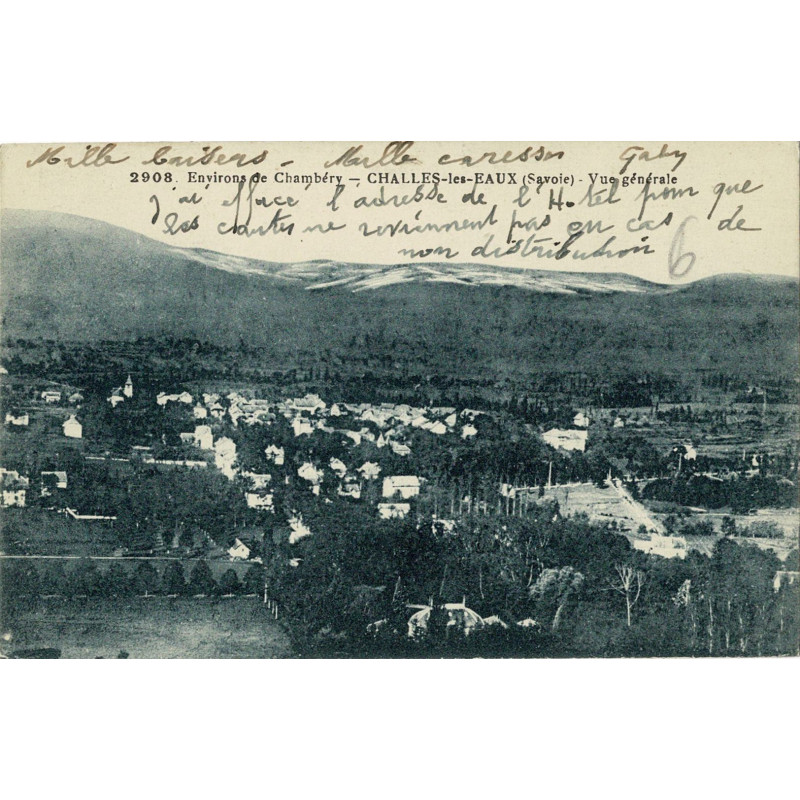 Mille baisers - Mille caresses Gaby
2908. Environs de Chambéry — CHALLES-les-EAUX (Savoie) - Vue générale
j'ai effacé l'adresse de l'Hotel pour que
les cartes ne reviennent pas en cas de
non distribution 6